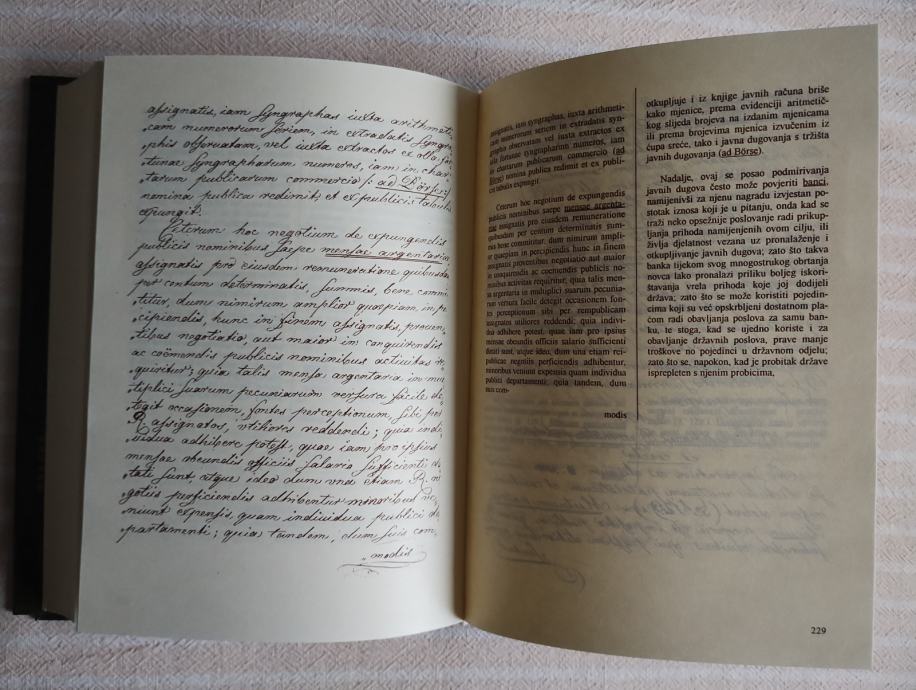 assignatis, iam Syngraphas iuxta arithmeti-
cam numerorum seriem, in extradatis Syngra-
phis observatam, vel iuxta extractos ex olla for-
tunae Syngrapharum numeros, iam in char-
tarum publicarum commercio /: ad Börse :/
nomina publica redimit, et ex publicis tabulis
expungit.
Ceterum hoc negotium de expungendis
publicis nominibus saepe mensae argentariae
assignatis pro eiusdem remuneratione quibusdam
per centum determinatis, summis, bene commit-
titur, dum nimirum amplior quaepiam, in per-
cipiendis, hunc in finem assignatis, proven-
tibus negotiatio, aut maior in conquirendis
ac coëmendis publicis nominibus activitas re-
quiritur; quia talis mensa argentaria in mul-
tiplici suarum pecuniarum versura facile de-
tegit occasionem, fontes perceptionum, sibi per
R. assignatos, utiliores reddendi; quia indi-
vidua adhibere potest, quae iam pro ipsius
mensae obeundis officiis salario sufficienti do-
tati sunt, atque ideo dum una etiam R. ne-
gotiis perficiendis adhibentur minoribus ve-
niunt expensis, quam individua publici de-
partamenti; quia tandem, dum suis com-
modis
assignatis, iam syngraphas, iuxta arithmeti-
cam numerorum seriem in extradatis syn-
graphis observatam vel iuxta extractos ex
olla fortunae syngrapharum numeros, iam
in chartarum publicarum commercio (ad
Börse) nomina publica redimit et ex publi-
cis tabulis expungit.
Ceterum hoc negotium de expungendis
publicis nominibus saepe mensae argenta-
riae assignatis pro eiusdem remuneratione
quibusdam per centum determinatis sum-
mis bene committitur, dum nimirum ampli-
or quaepiam in percipiendis hunc in finem
assignatis proventibus negotiatio aut maior
in conquirendis ac coemendis publicis no-
minibus activitas requiritur; quia talis men-
sa argentaria in multiplici suarum pecunia-
rum versura facile detegit occasionem fon-
tes perceptionum sibi per rempublicam
assignatos utiliores reddendi; quia indivi-
dua adhibere potest, quae iam pro ipsius
mensae obeundis officiis salario sufficienti
dotati sunt, atque ideo, dum una etiam rei-
publicae negotiis perficiendis adhibentur,
minoribus veniunt expensis quam individua
publici departamenti; quia tandem, dum
suis com-
modis
otkupljuje i iz knjige javnih računa briše
kako mjenice, prema evidenciji aritmetič-
kog slijeda brojeva na izdanim mjenicama
ili prema brojevima mjenica izvučenim iz
ćupa sreće, tako i javna dugovanja s tržišta
javnih dugovanja (ad Börse).
Nadalje, ovaj se posao podmirivanja
javnih dugova često može povjeriti banci,
namijenivši za njenu nagradu izvjestan po-
stotak iznosa koji je u pitanju, onda kad se
traži neko opsežnije poslovanje radi prikup-
ljanja prihoda namijenjenih ovom cilju, ili
življa djelatnost vezana uz pronalaženje i
otkupljivanje javnih dugova; zato što takva
banka tijekom svog mnogostrukog obrtanja
novca lako pronalazi priliku boljeg iskori-
štavanja vrela prihoda koje joj dodijeli
država; zato što se može koristiti pojedin-
cima koji su već opskrbljeni dostatnom pla-
ćom radi obavljanja poslova za samu ban-
ku, te stoga, kad se ujedno koriste i za
obavljanje državnih poslova, prave manje
troškove no pojedinci u državnom odjelu;
zato što se, napokon, kad je probitak države
isprepleten s njenim probicima,
229